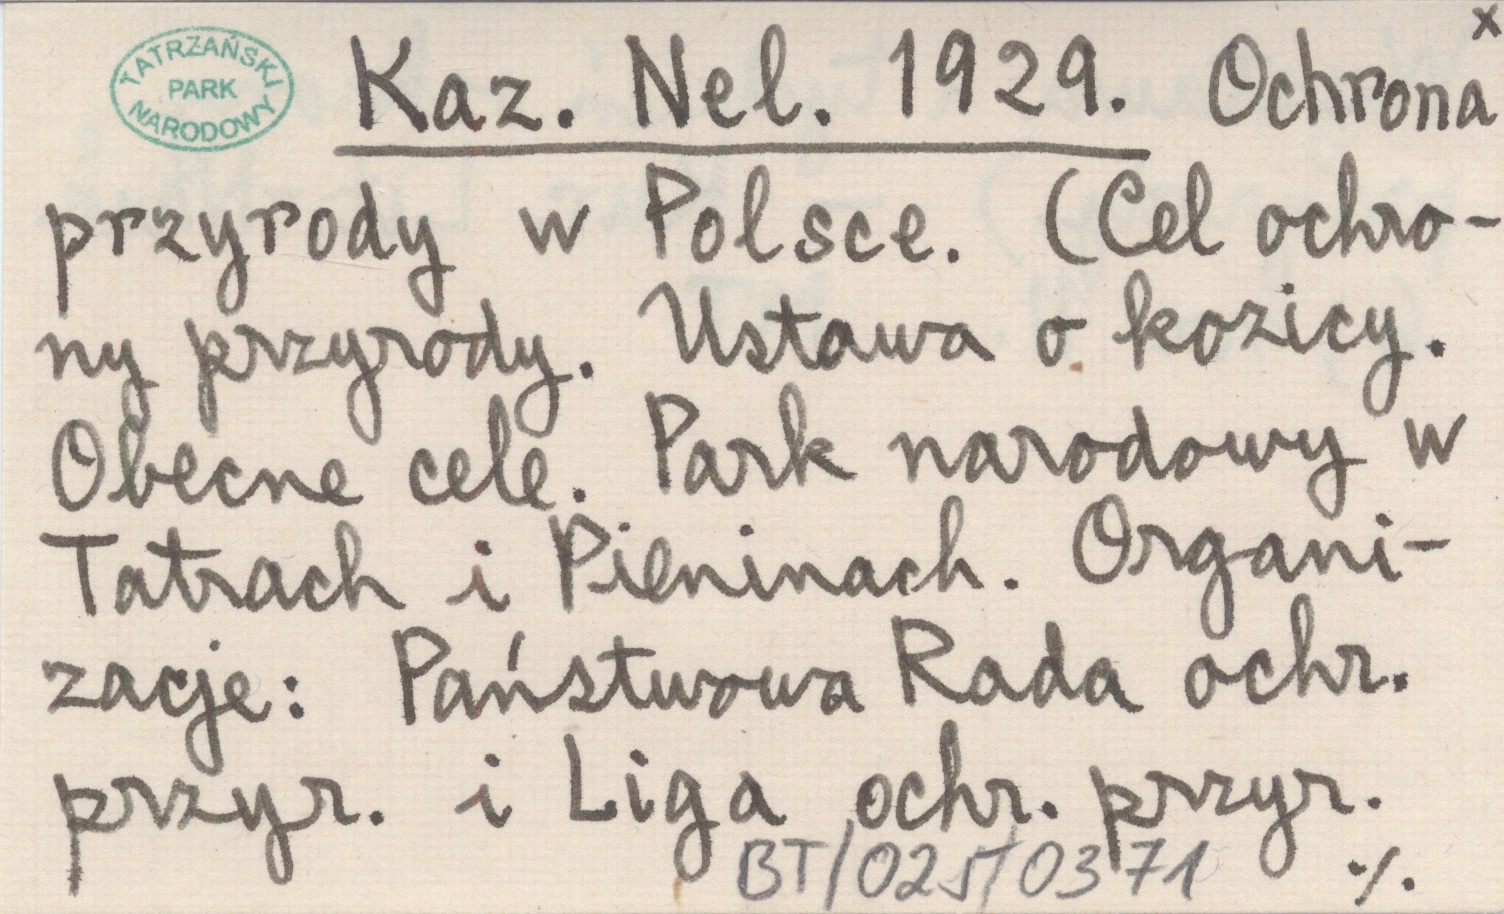 x
TATRZAŃSKI
PARK
NARODOWY
Kaz. Nel. 1929. Ochrona
przyrody w Polsce. (Cel ochro-
ny przyrody. Ustawa o kozicy.
Obecne cele. Park narodowy w
Tatrach i Pieninach. Organi-
zacje: Państwowa Rada ochr.
przyr. i Liga ochr. przyr.
BT/025/0371 ./.